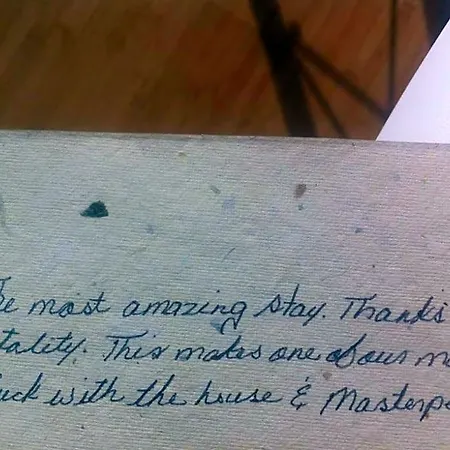 e most amazing stay. Thanks
tality. This makes one of our m
uck with the house & Masterp